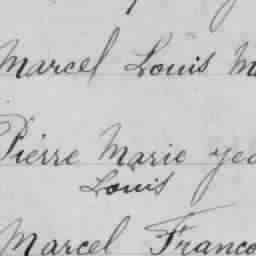 Marcel Louis M
Pierre Marie yea
Louis
Marcel Franco